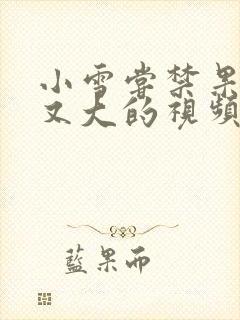 小雪嘗禁果
又大的視頻
藍果而